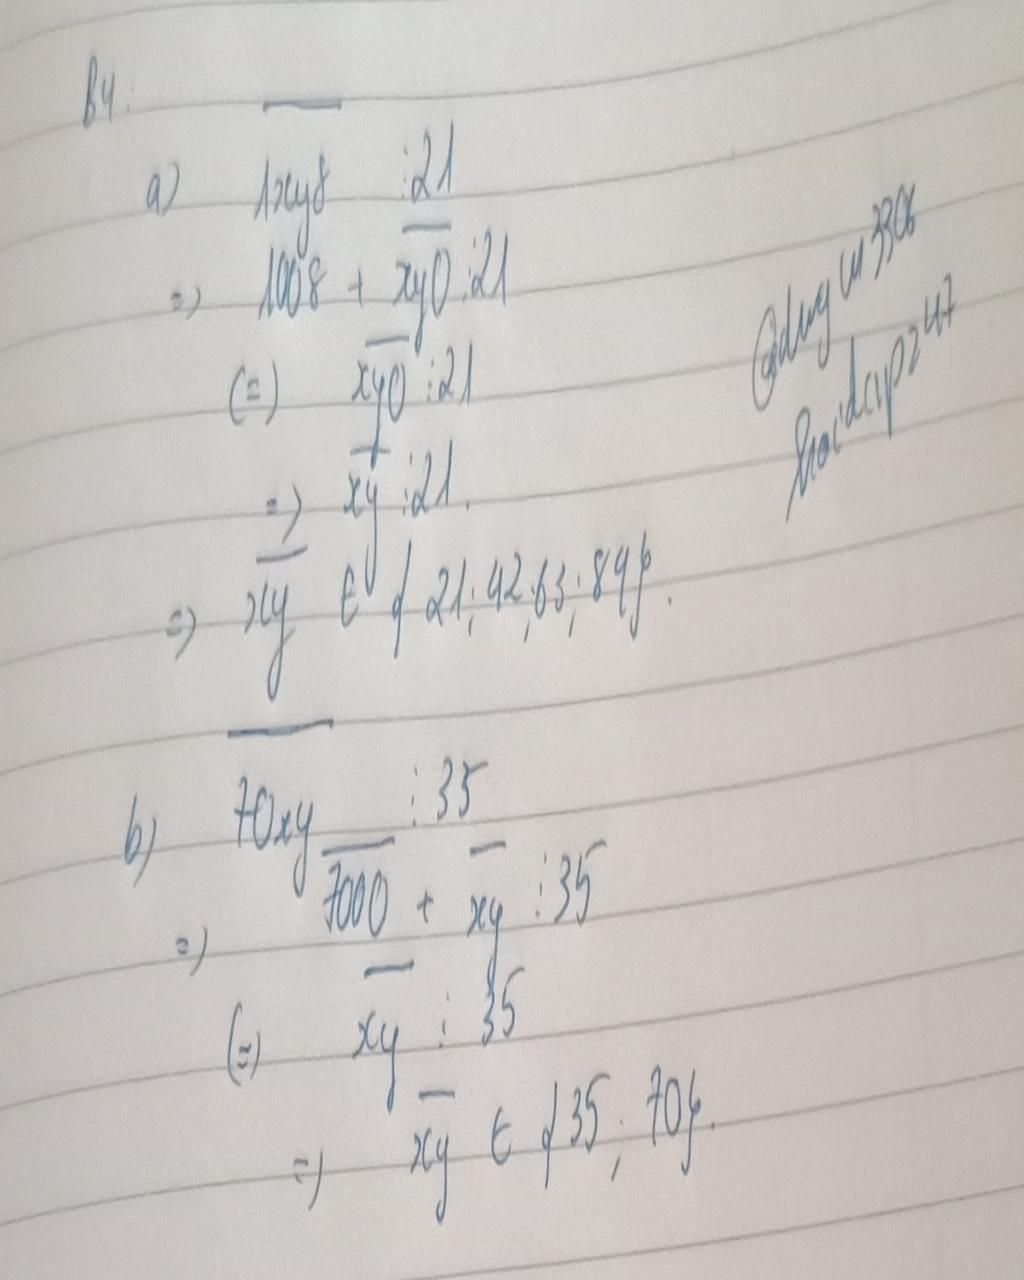 B4.
a) 1xy8 ⋮ 21
=) 1008 + xy0 ⋮ 21
(=) xy0 ⋮ 21
=) xy ⋮ 21.
=) xy ∈ {21; 42; 63; 84}.
b) 70xy ⋮ 35
=) 7000 + xy ⋮ 35
(=) xy ⋮ 35
=) xy ∈ {35; 70}.
hoidap247